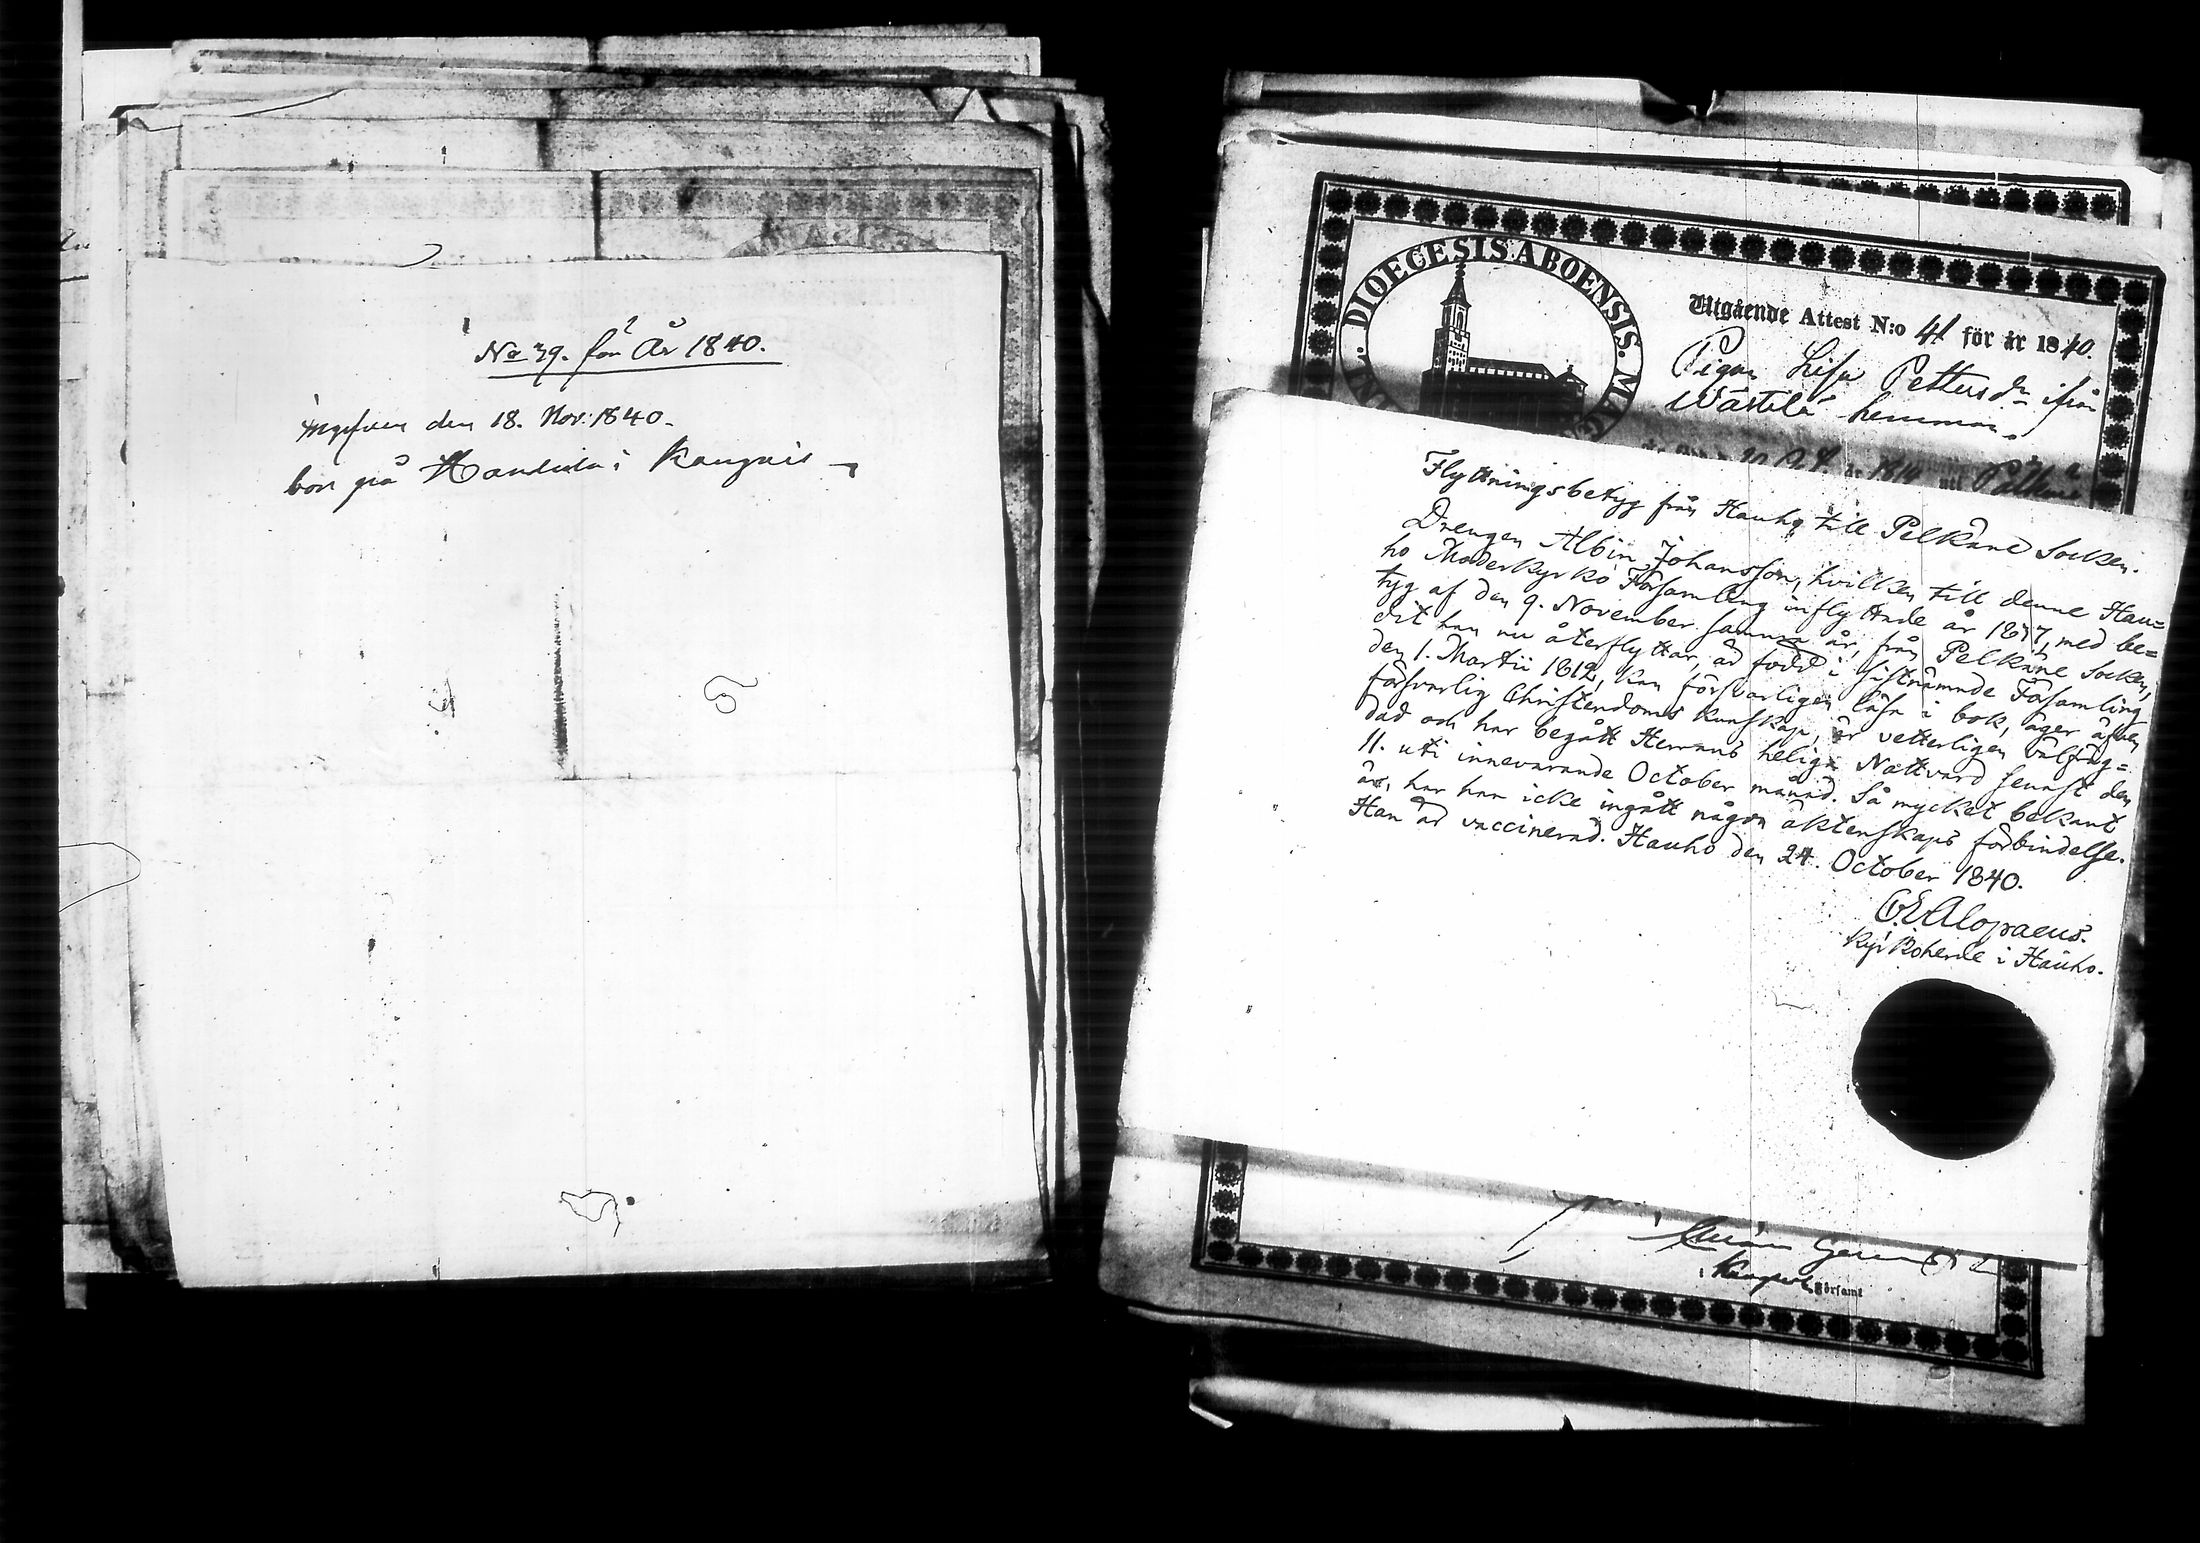 No 39. för År 1840.
ingifven den 18. Nov: 1840.
bor på Handula i Kangais
DIOECESIS ABOENSIS. MAG
Utgående Attest N:o 41 för år 1840.
Pigan Lisa Pettersdr ifrån
Wästilä hemman.
Flyttningsbetyg från Hauho till Pelkäne Socken.
Drengen Albin Johansson, hvilken till denne Hau=
ho Moderkyrko Församling inflyttade år 1837, med be=
tyg af den 9. November samma år, från Pelkäne Socken,
dit han nu återflyttar, är född i sistnämnde Församling
den 1. Martii 1812, kan försvarligen läsa i bok, äger äfven
försvarlig Christendoms kunskap, är vetterligen välfräg=
dad och har begått Herrans heliga Nattvard senast den
11. uti innevarande October månad. Så mycket bekant
är, har han icke ingått någon äktenskaps förbindelse.
Han är vaccinerad. Hauho den 24. October 1840.
Alopaeus.
Kyrkoherde i Hauho.
Församl